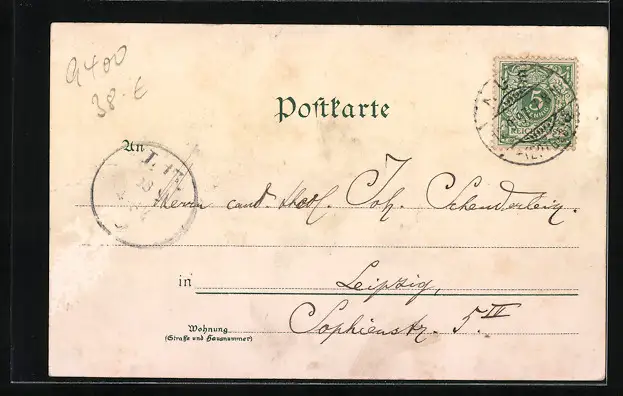 9400
38.€
Postkarte
5
An
Herrn cand. theol. Joh. Schenderlein.
in Leipzig,
Sophienstr. 5.IV
Wohnung
(Straße und Hausnummer)